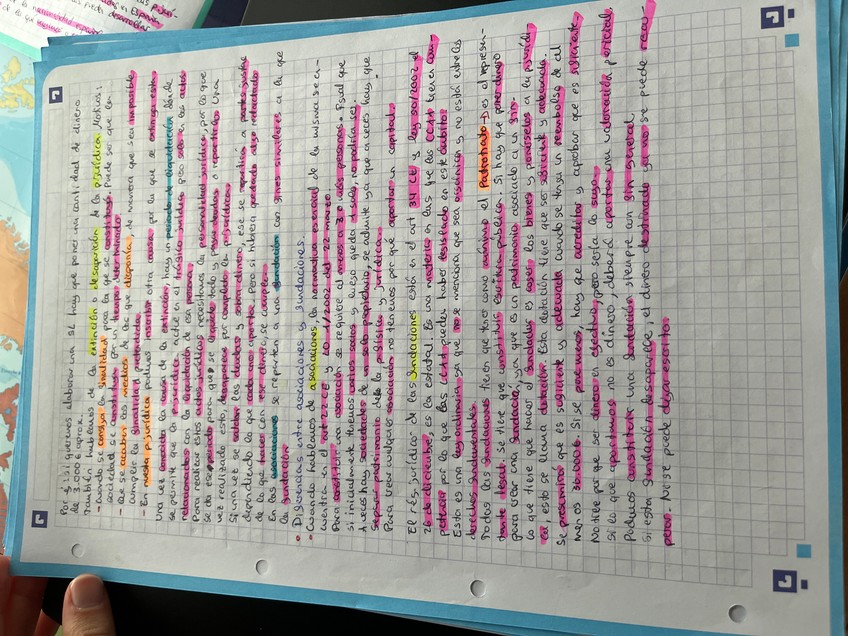 Por ej: si queremos elaborar una SL hay que poner una cantidad de dinero
de 3.000€ aprox.
También hablamos de la extinción o desaparición de la pjurídica. Motivos:
- cuando se consiga la finalidad para la que se constituyó. Puede ser que la
sociedad se constituyese por un tiempo determinado.
- Que se acaban los medios de los que disponía, de manera que sea imposible
cumplir la finalidad pretendida.
- En nuestra pjurídica podemos inscribir otra causa por la que se extinga esta.
Una vez conocida la causa de la extinción, hay un periodo de liquidación dónde
se permite que la pjurídica actúe en el tráfico jurídico pero solo en los actos
relacionados con la liquidación de esa persona.
Para realizar estos actos jurídicos necesitamos la personalidad jurídica, por lo que
se da ese periodo para que se liquide todo y pague deudas o reparto. Una
vez realizado esto, desaparece por completo la pjurídica.
Si una vez se saldan las deudas y sobra dinero, ese se reparte a partes justas
dependiendo lo que cada uno aporte. Pero si hubiera quedado algo redactado
de lo que hacer con ese dinero, se cumple.
En las asociaciones se reparten a una fundación con fines similares a la que
la fundación.
• Diferencias entre asociaciones y fundaciones.
• Cuando hablamos de asociaciones, la normativa esencial de la misma se en-
cuentra en el art 22 CE y LO 1/2002 del 22 marzo
Para constituir una asociación se requiere al menos a 3 o más personas. Igual que
si inicialmente tenemos varios socios y luego queda 1 solo, no podría ser.
A veces hay sociedades de un solo propietario, se admite ya que a veces hay que
separar patrimonio de la pfísica y jurídica.
Para crear cualquier asociación no tenemos por qué aportar un capital.
El rég. jurídico de las fundaciones están en el art 34 CE y ley 50/2002 el
26 de diciembre, es la estatal. Es una materia en las que las CCAA tienen com-
petencia por lo que las CCAA pueden haber legislado en este ámbito.
Esta es una ley ordinaria ya que no se menciona que sea orgánica y no está entre los
derechos fundamentales.
Todas las fundaciones tienen que tener como mínimo el Patronato → es el represen-
tante legal. Se tiene que constituir escritura pública. Si hay que poner dinero
para crear una fundación, ya que es un patrimonio asociado a un fin.
Lo que tiene que hacer el fundador es coger los bienes y ponérselos a la jurídi-
ca, esto se llama dotación. Esta dotación tiene que ser suficiente y adecuada.
Se presumirá que es suficiente y adecuada cuando se tenga un reembolso de al
menos 30.000€. Si se pone menos, hay que acreditar y aprobar que es suficiente.
No tiene por qué ser dinero en efectivo, pero sería lo suyo.
Si lo que aportamos no es dinero, deberá aportar una valoración pericial.
Podemos constituir una fundación siempre con fin general.
Si esta fundación desaparece, el dinero destinado ya no se puede recu-
perar. No se puede dejar escrito.